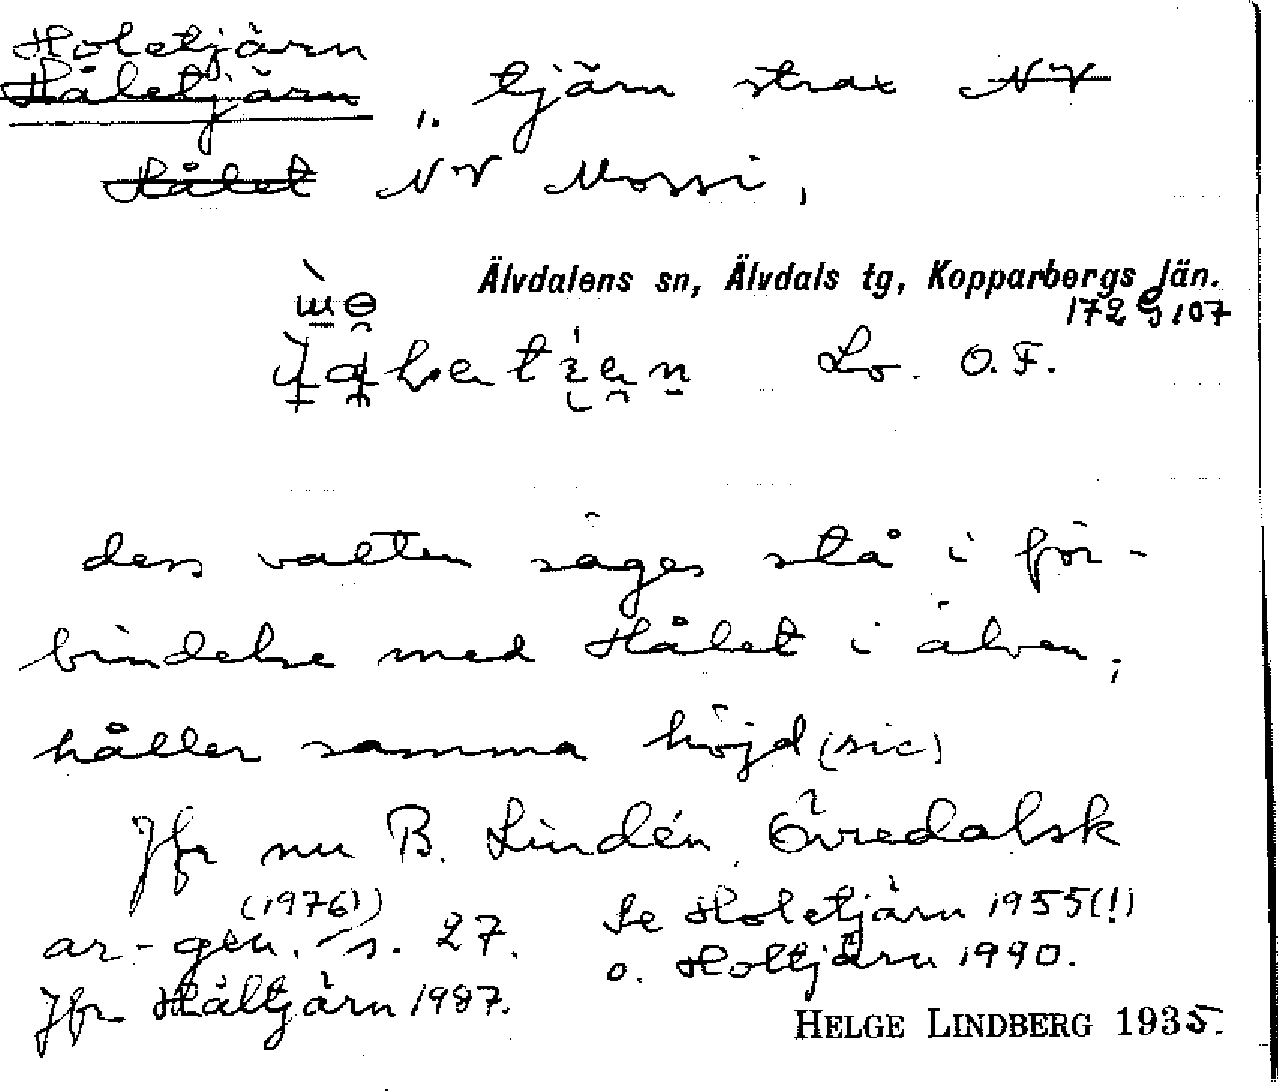 Holetjärn
Håletjärn, tjärn strax NV
Hålet NV Mossi,
Älvdalens sn, Älvdals tg, Kopparbergs län.
172 G 107
Lo. O.F.
dess vatten säges stå i för-
bindelse med Hålet i älven,
håller samma höjd (sic)
Jfr nu B. Lindén, Övredalsk
ar-gen. (1976) s. 27.
Jfr Håltjärn 1987.
Se Holetjärn 1955(!)
o. Holtjärn 1990.
HELGE LINDBERG 1935.